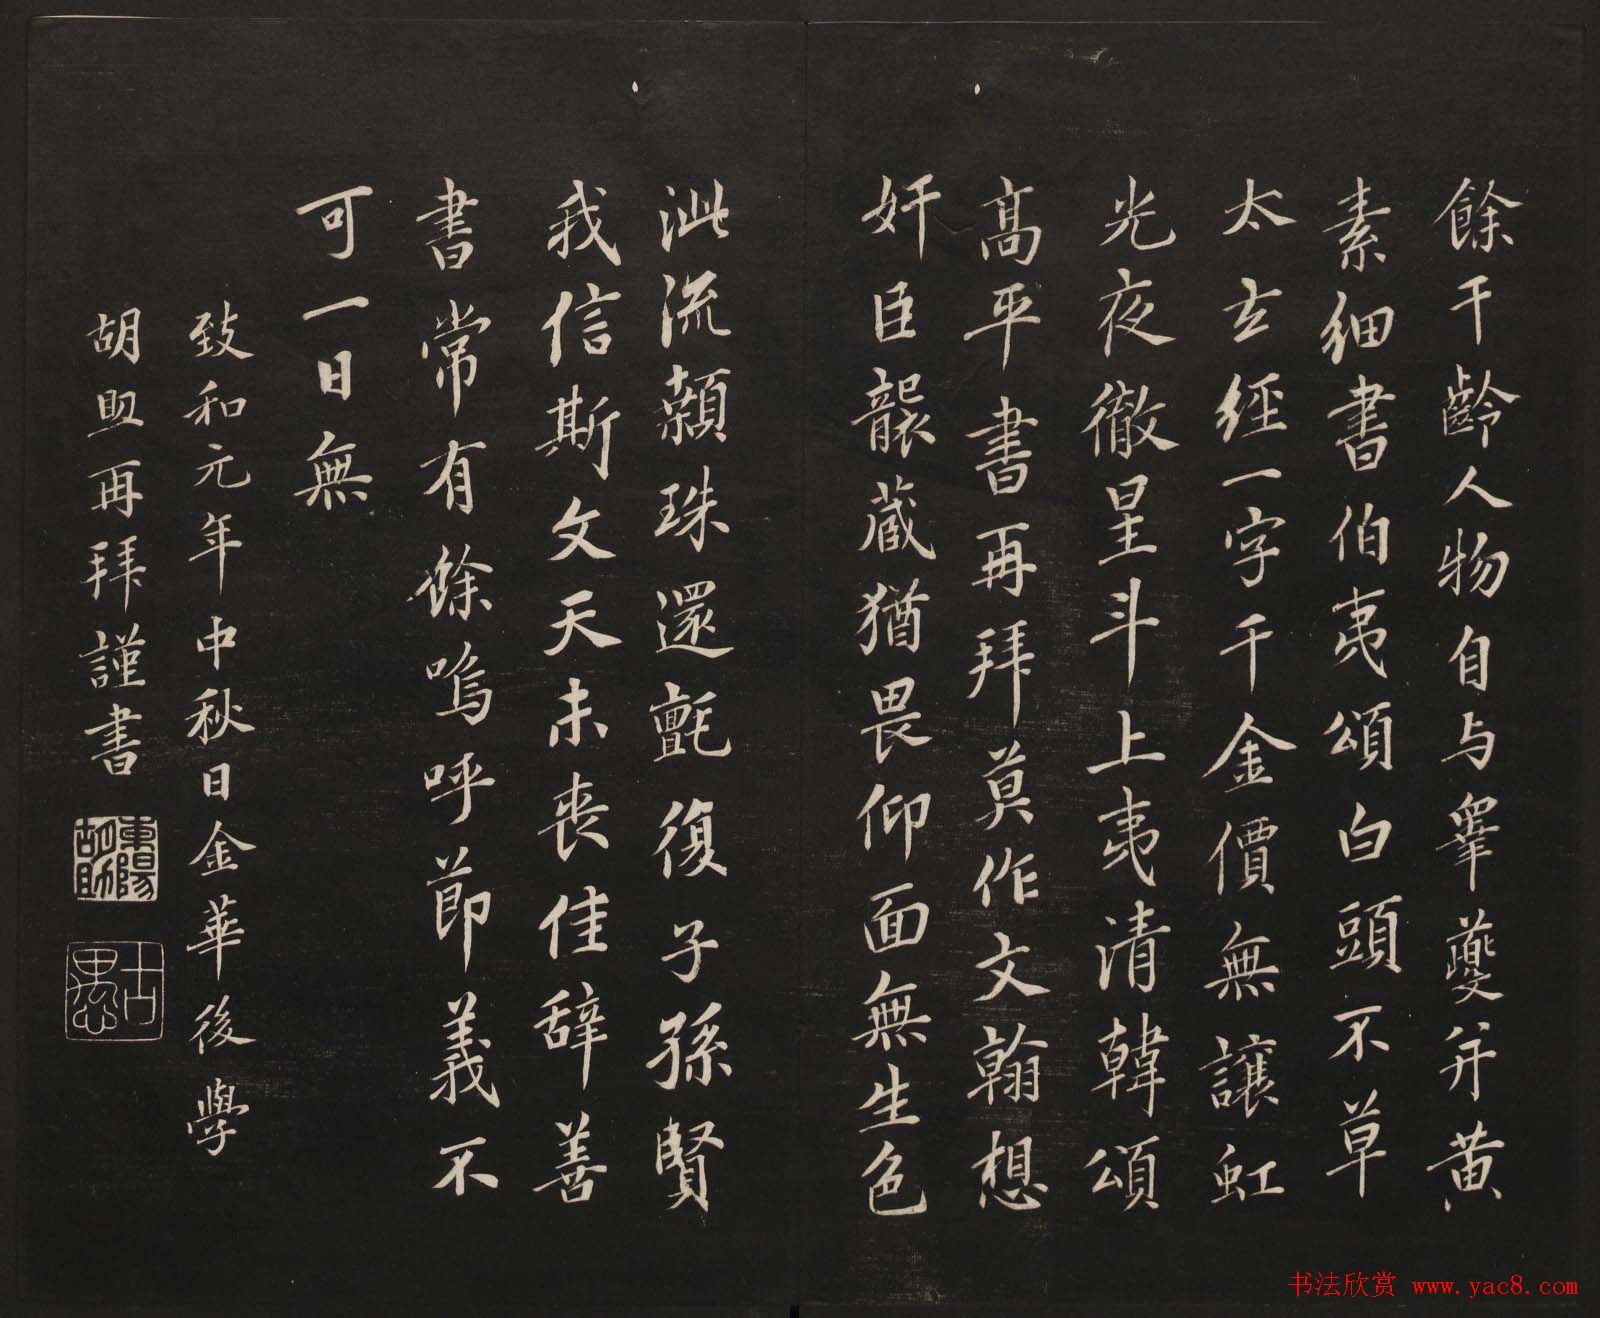 餘千齡人物自与睾夔并黄
素細書伯夷頌白頭不草
太玄經一字千金價無讓虹
光夜徹星斗上夷清韓頌
髙平書再拜莫作文翰想
奸臣襲蔵猶畏仰面無生色
泚流顙珠還氈復子孫賢
我信斯文天未丧佳辞善
書常有餘嗚呼節義不
可一日無
致和元年中秋日金華後學
胡助再拜謹書
東陽胡助
古愚
书法欣赏 www.yac8.com